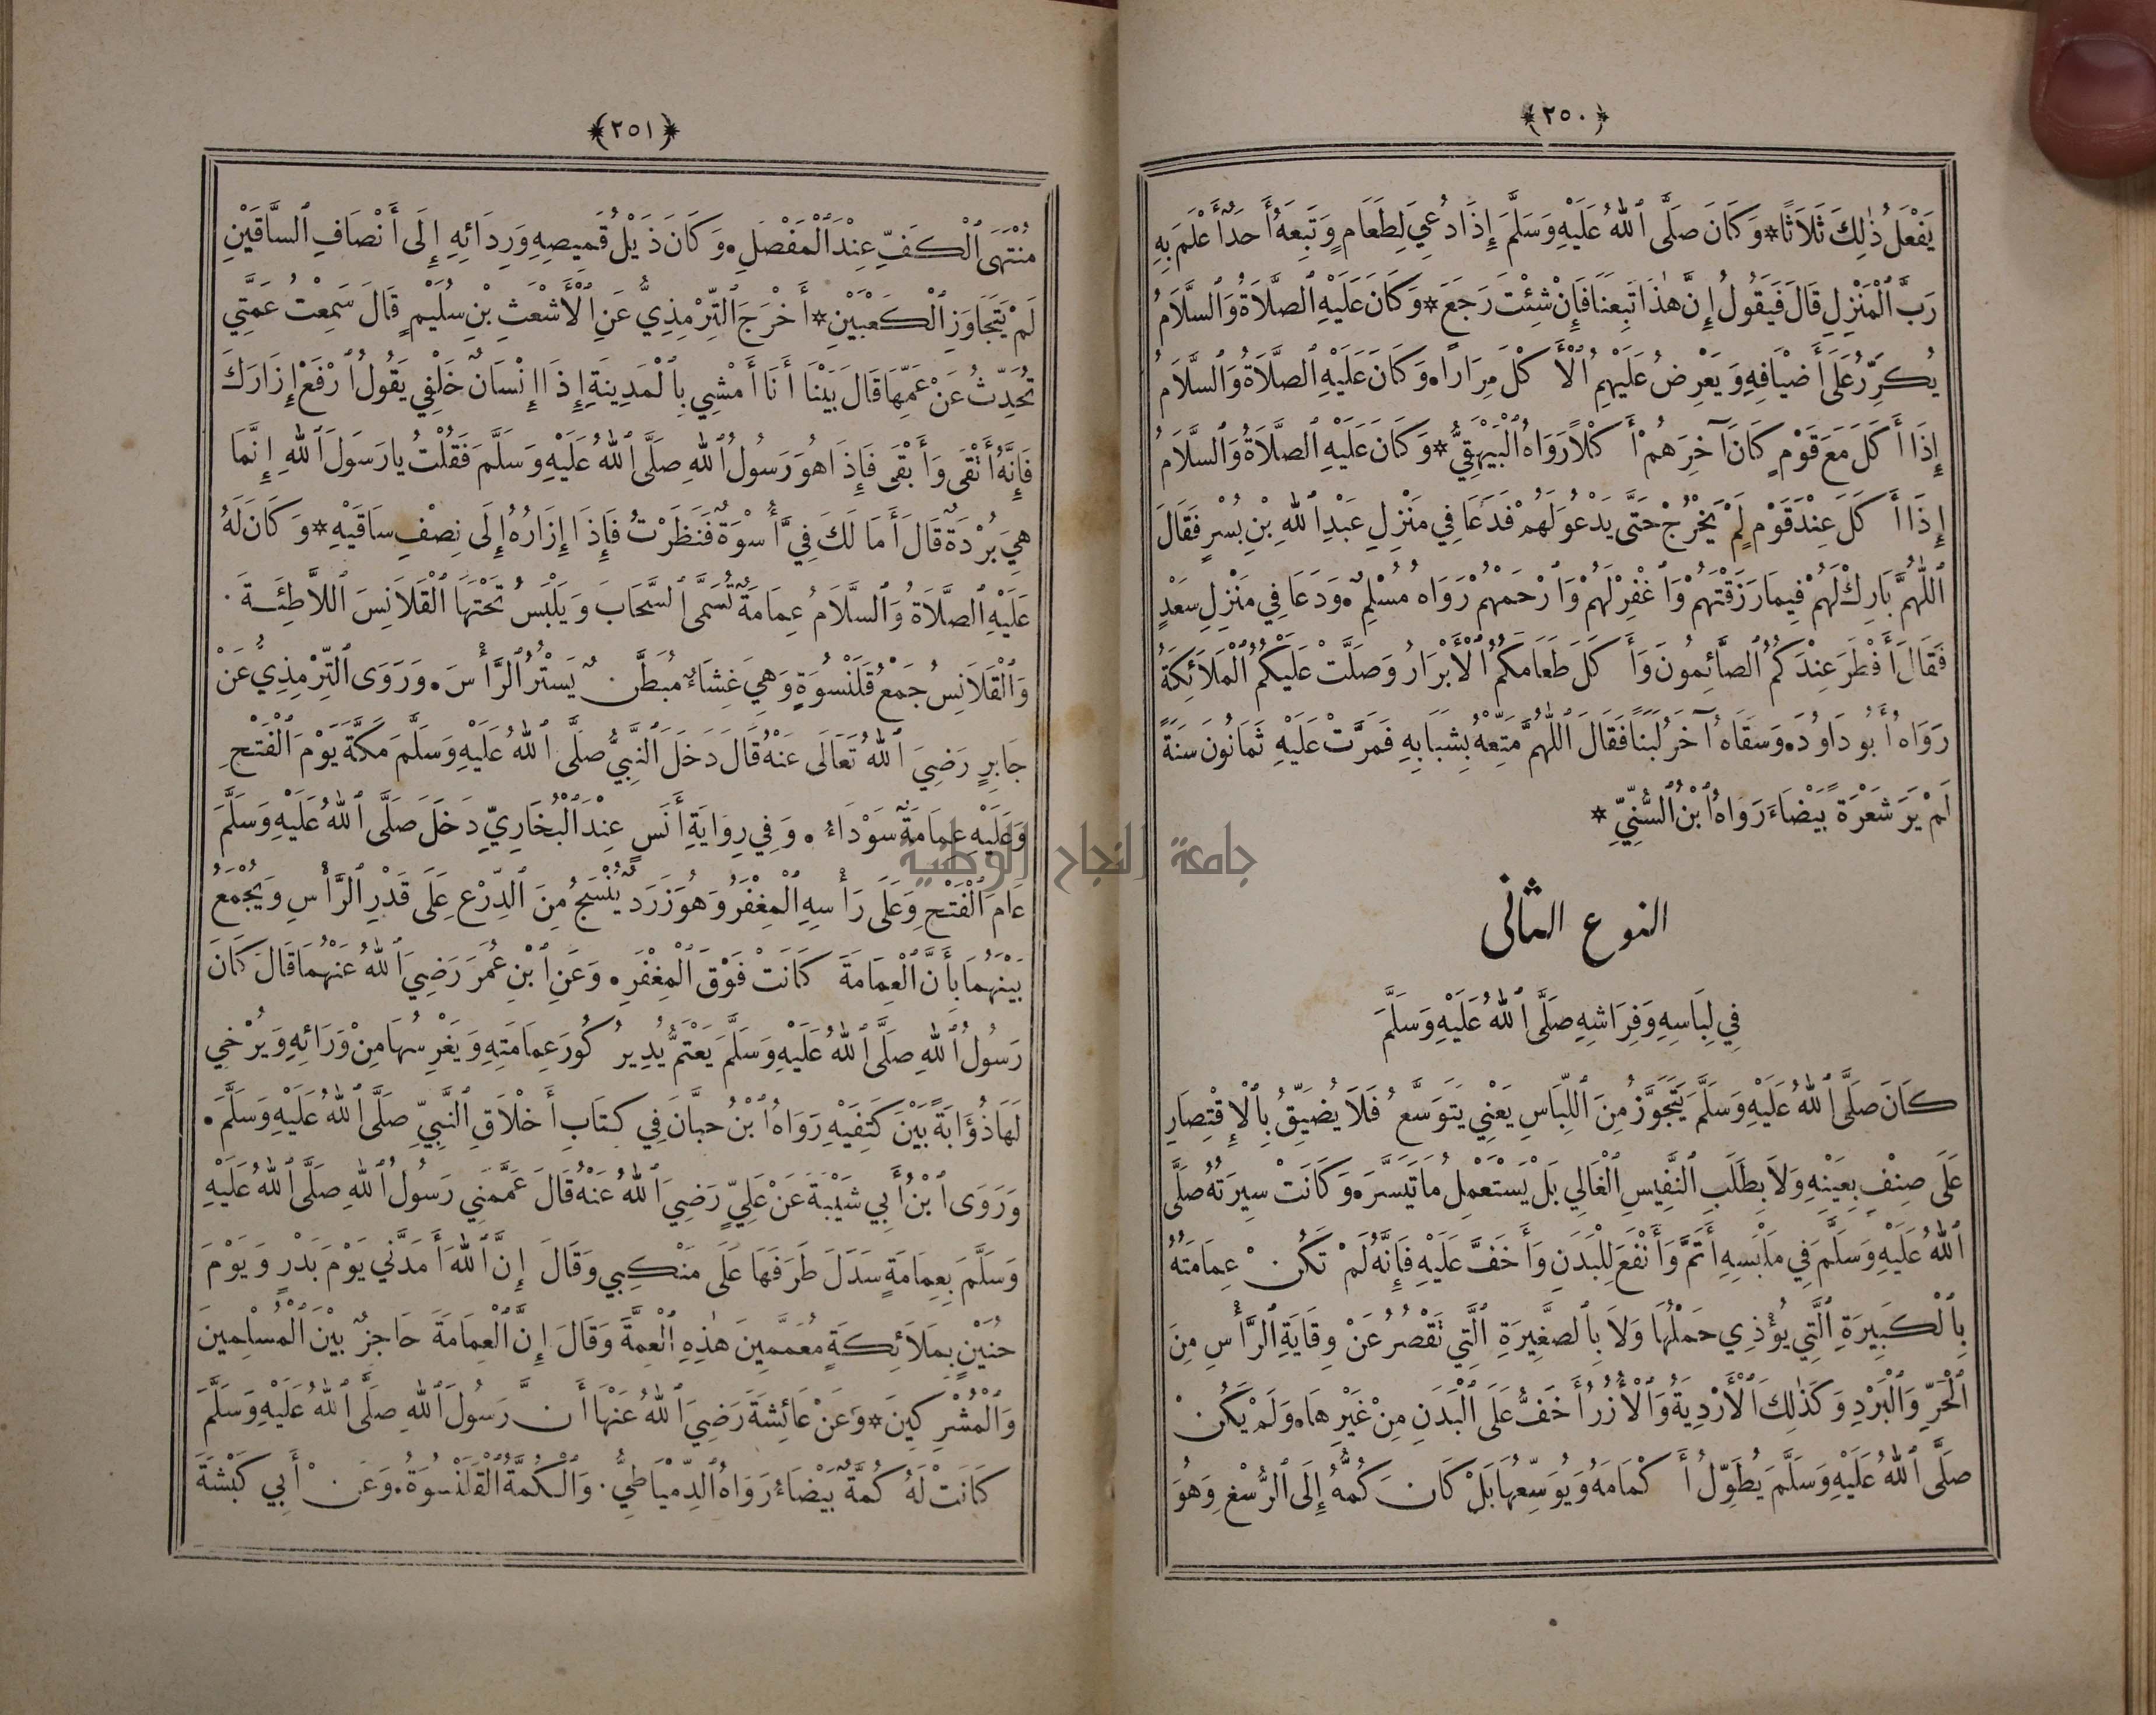 ﴿٢٥٠﴾
يَفْعَلُ ذٰلِكَ ثَلَاثًا * وَكَانَ صَلَّى ٱللهُ عَلَيْهِ وَسَلَّمَ إِذَا دُعِيَ لِطَعَامٍ وَتَبِعَهُ أَحَدٌ أَعْلَمَ بِهِ
رَبَّ ٱلْمَنْزِلِ قَالَ فَيَقُولُ إِنَّ هٰذَا تَبِعَنَا فَإِنْ شِئْتَ رَجَعَ * وَكَانَ عَلَيْهِ ٱلصَّلَاةُ وَٱلسَّلَامُ
يُكَرِّرُ عَلَى أَضْيَافِهِ وَيَعْرِضُ عَلَيْهِمُ ٱلْأَكْلَ مِرَارًا. وَكَانَ عَلَيْهِ ٱلصَّلَاةُ وَٱلسَّلَامُ
إِذَا أَكَلَ مَعَ قَوْمٍ كَانَ آخِرَهُمْ أَكْلًا رَوَاهُ ٱلْبَيْهَقِيُّ * وَكَانَ عَلَيْهِ ٱلصَّلَاةُ وَٱلسَّلَامُ
إِذَا أَكَلَ عِنْدَ قَوْمٍ لَمْ يَخْرُجْ حَتَّى يَدْعُوَ لَهُمْ فَدَعَا فِي مَنْزِلِ عَبْدِ ٱللهِ بْنِ بُسْرٍ فَقَالَ
ٱللّٰهُمَّ بَارِكْ لَهُمْ فِيمَا رَزَقْتَهُمْ وَٱغْفِرْ لَهُمْ وَٱرْحَمْهُمْ رَوَاهُ مُسْلِمٌ. وَدَعَا فِي مَنْزِلِ سَعْدٍ
فَقَالَ أَفْطَرَ عِنْدَكُمُ ٱلصَّائِمُونَ وَأَكَلَ طَعَامَكُمُ ٱلْأَبْرَارُ وَصَلَّتْ عَلَيْكُمُ ٱلْمَلَائِكَةُ
رَوَاهُ أَبُو دَاوُدَ. وَسَقَاهُ آخَرُ لَبَنًا فَقَالَ ٱللّٰهُمَّ مَتِّعْهُ بِشَبَابِهِ فَمَرَّتْ عَلَيْهِ ثَمَانُونَ سَنَةً
لَمْ يَرَ شَعْرَةً بَيْضَاءَ رَوَاهُ ٱبْنُ ٱلسُّنِّيِّ *
النوع الثانى
فِي لِبَاسِهِ وَفِرَاشِهِ صَلَّى ٱللهُ عَلَيْهِ وَسَلَّمَ
كَانَ صَلَّى ٱللهُ عَلَيْهِ وَسَلَّمَ يَتَجَوَّزُ مِنَ ٱللِّبَاسِ يَعْنِي يَتَوَسَّعُ فَلَا يُضَيِّقُ بِٱلْاِقْتِصَارِ
عَلَى صِنْفٍ بِعَيْنِهِ وَلَا بِطَلَبِ ٱلنَّفِيسِ ٱلْغَالِي بَلْ يَسْتَعْمِلُ مَا تَيَسَّرَ. وَكَانَتْ سِيرَتُهُ صَلَّى
ٱللهُ عَلَيْهِ وَسَلَّمَ فِي مَلْبَسِهِ أَتَمَّ وَأَنْفَعَ لِلْبَدَنِ وَأَخَفَّ عَلَيْهِ فَإِنَّهُ لَمْ تَكُنْ عِمَامَتُهُ
بِٱلْكَبِيرَةِ ٱلَّتِي يُؤْذِي حَمْلُهَا وَلَا بِٱلصَّغِيرَةِ ٱلَّتِي تَقْصُرُ عَنْ وِقَايَةِ ٱلرَّأْسِ مِنَ
ٱلْحَرِّ وَٱلْبَرْدِ وَكَذٰلِكَ ٱلْأَرْدِيَةُ وَٱلْأُزُرُ أَخَفُّ عَلَى ٱلْبَدَنِ مِنْ غَيْرِهَا. وَلَمْ يَكُنْ
صَلَّى ٱللهُ عَلَيْهِ وَسَلَّمَ يُطَوِّلُ أَكْمَامَهُ وَيُوَسِّعُهَا بَلْ كَانَ كُمُّهُ إِلَى ٱلرُّسْغِ وَهُوَ
﴿٢٥١﴾
مُنْتَهَى ٱلْكَفِّ عِنْدَ ٱلْمَفْصَلِ. وَكَانَ ذَيْلُ قَمِيصِهِ وَرِدَائِهِ إِلَى أَنْصَافِ ٱلسَّاقَيْنِ
لَمْ يَتَجَاوَزِ ٱلْكَعْبَيْنِ * أَخْرَجَ ٱلتِّرْمِذِيُّ عَنِ ٱلْأَشْعَثِ بْنِ سُلَيْمٍ قَالَ سَمِعْتُ عَمَّتِي
تُحَدِّثُ عَنْ عَمِّهَا قَالَ بَيْنَا أَنَا أَمْشِي بِٱلْمَدِينَةِ إِذَا إِنْسَانٌ خَلْفِي يَقُولُ ٱرْفَعْ إِزَارَكَ
فَإِنَّهُ أَنْقَى وَأَبْقَى فَإِذَا هُوَ رَسُولُ ٱللهِ صَلَّى ٱللهُ عَلَيْهِ وَسَلَّمَ فَقُلْتُ يَا رَسُولَ ٱللهِ إِنَّمَا
هِيَ بُرْدَةٌ قَالَ أَمَا لَكَ فِيَّ أُسْوَةٌ فَنَظَرْتُ فَإِذَا إِزَارُهُ إِلَى نِصْفِ سَاقَيْهِ * وَكَانَ لَهُ
عَلَيْهِ ٱلصَّلَاةُ وَٱلسَّلَامُ عِمَامَةٌ تُسَمَّى ٱلسَّحَابَ وَيَلْبَسُ تَحْتَهَا ٱلْقَلَانِسَ ٱللَّاطِئَةَ.
وَٱلْقَلَانِسُ جَمْعُ قَلَنْسُوَةٍ وَهِيَ غِشَاءٌ مُبَطَّنٌ يَسْتُرُ ٱلرَّأْسَ. وَرَوَى ٱلتِّرْمِذِيُّ عَنْ
جَابِرٍ رَضِيَ ٱللهُ تَعَالَى عَنْهُ قَالَ دَخَلَ ٱلنَّبِيُّ صَلَّى ٱللهُ عَلَيْهِ وَسَلَّمَ مَكَّةَ يَوْمَ ٱلْفَتْحِ
وَعَلَيْهِ عِمَامَةٌ سَوْدَاءُ. وَفِي رِوَايَةِ أَنَسٍ عِنْدَ ٱلْبُخَارِيِّ دَخَلَ صَلَّى ٱللهُ عَلَيْهِ وَسَلَّمَ
عَامَ ٱلْفَتْحِ وَعَلَى رَأْسِهِ ٱلْمِغْفَرُ وَهُوَ زَرَدٌ يُنْسَجُ مِنَ ٱلدِّرْعِ عَلَى قَدْرِ ٱلرَّأْسِ وَيُجْمَعُ
بَيْنَهُمَا بِأَنَّ ٱلْعِمَامَةَ كَانَتْ فَوْقَ ٱلْمِغْفَرِ. وَعَنِ ٱبْنِ عُمَرَ رَضِيَ ٱللهُ عَنْهُمَا قَالَ كَانَ
رَسُولُ ٱللهِ صَلَّى ٱللهُ عَلَيْهِ وَسَلَّمَ يَعْتَمُّ يُدِيرُ كُورَ عِمَامَتِهِ وَيَغْرِسُهَا مِنْ وَرَائِهِ وَيُرْخِي
لَهَا ذُؤَابَةً بَيْنَ كَتِفَيْهِ رَوَاهُ ٱبْنُ حِبَّانَ فِي كِتَابِ أَخْلَاقِ ٱلنَّبِيِّ صَلَّى ٱللهُ عَلَيْهِ وَسَلَّمَ.
وَرَوَى ٱبْنُ أَبِي شَيْبَةَ عَنْ عَلِيٍّ رَضِيَ ٱللهُ عَنْهُ قَالَ عَمَّمَنِي رَسُولُ ٱللهِ صَلَّى ٱللهُ عَلَيْهِ
وَسَلَّمَ بِعِمَامَةٍ سَدَلَ طَرَفَهَا عَلَى مَنْكِبِي وَقَالَ إِنَّ ٱللهَ أَمَدَّنِي يَوْمَ بَدْرٍ وَيَوْمَ
حُنَيْنٍ بِمَلَائِكَةٍ مُعَمَّمِينَ هٰذِهِ ٱلْعِمَّةَ وَقَالَ إِنَّ ٱلْعِمَامَةَ حَاجِزٌ بَيْنَ ٱلْمُسْلِمِينَ
وَٱلْمُشْرِكِينَ * وَعَنْ عَائِشَةَ رَضِيَ ٱللهُ عَنْهَا أَنَّ رَسُولَ ٱللهِ صَلَّى ٱللهُ عَلَيْهِ وَسَلَّمَ
كَانَتْ لَهُ كُمَّةٌ بَيْضَاءُ رَوَاهُ ٱلدِّمْيَاطِيُّ. وَٱلْكُمَّةُ ٱلْقَلَنْسُوَةُ. وَعَنْ أَبِي كَبْشَةَ
جامعة النجاح الوطنية